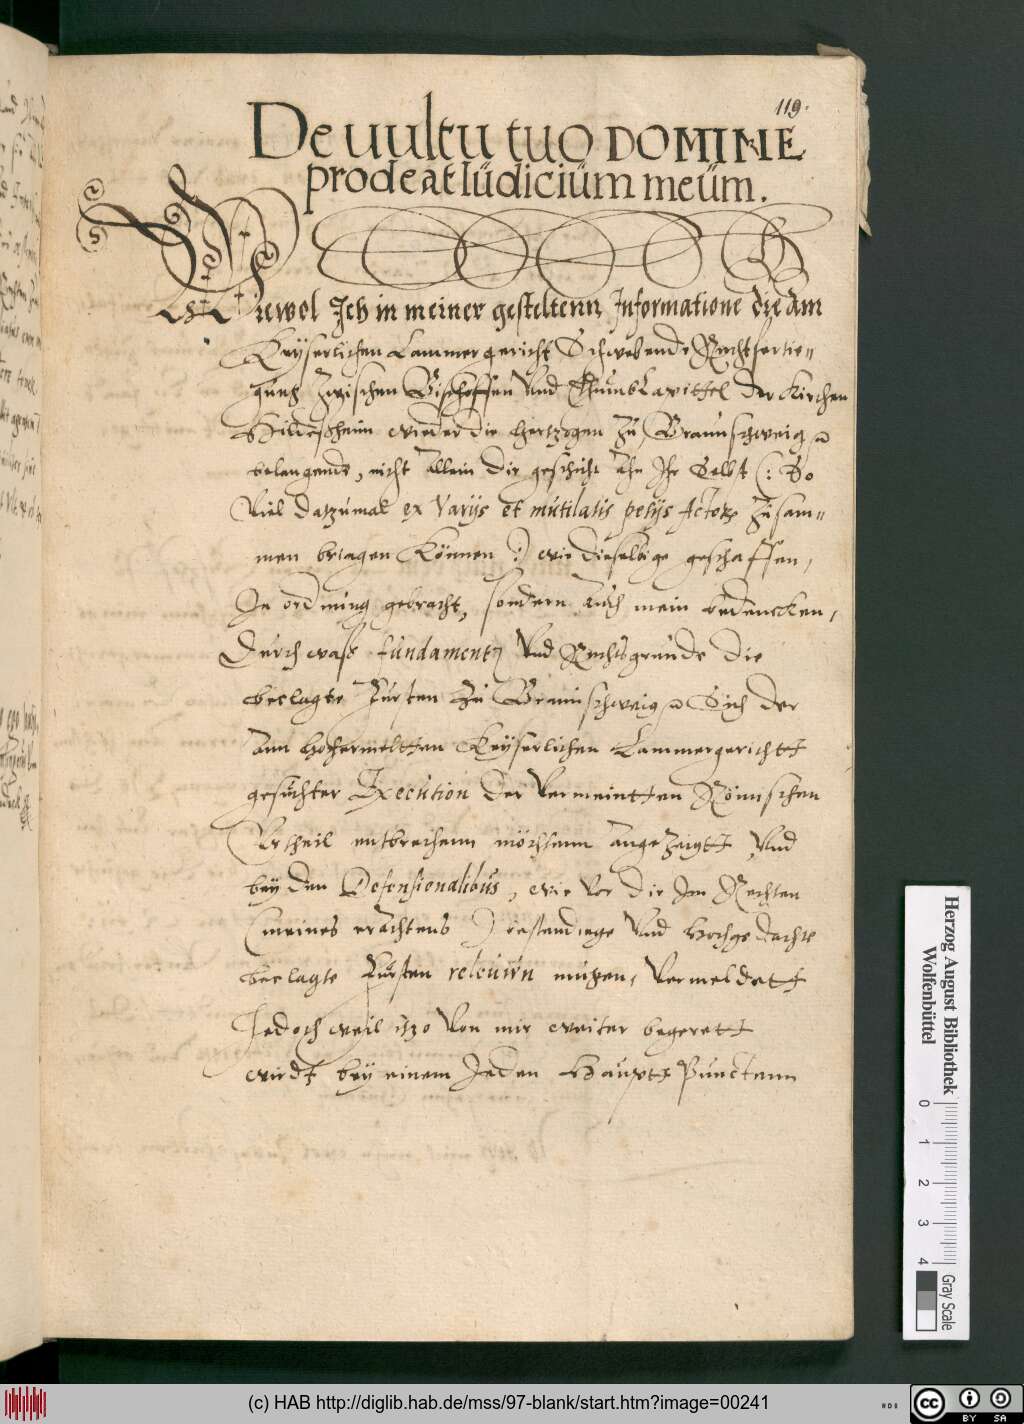 119.
De uultu tuo DOMINE
prodeat Iüdiciüm meüm.
Wiewol Ich in meiner gesteltenn Informatione die am
Keyserlichen Cammergericht Schwebende Rechtfertie=
gung zwischen Bischoffen Vnd ThumbCapittel der Kirchen
Hildeßheim wieder die Hertzogen zu Braunschweig
belangende, nicht allein die geschicht ahn Ihr Selbst (: So
Viel datzumal ex Varijs et mutilatis petijs Actorum zusam=
men bringen Können :) wie dieselbige geschaffen,
In ordnung gebracht, sondern auch mein bedencken,
Durch wasß fundament Vnd Rechtsgrunde die
beclagte Fursten zu Braunschweig Sich der
ann hochermeltten Keyserlichen Cammergerichtt
gesuchter Execution der Vermeintten Römischen
Vrtheil entbrechenn möchtenn angezeigtt, Vnd
bey den Defensionalibus, wie Vor die Im Rechten
(meines erachtens) bestendiege Vnd hochgedachte
beclagte Fursten releuirn mugen, Vermeldett
Jedoch weil itzo Von mir weiter begerett
wirdt bey einem Jeden Hauptt Punctenn
Herzog August Bibliothek
Wolfenbüttel
0 1 2 3 4
Gray Scale
(c) HAB http://diglib.hab.de/mss/97-blank/start.htm?image=00241
cc BY SA